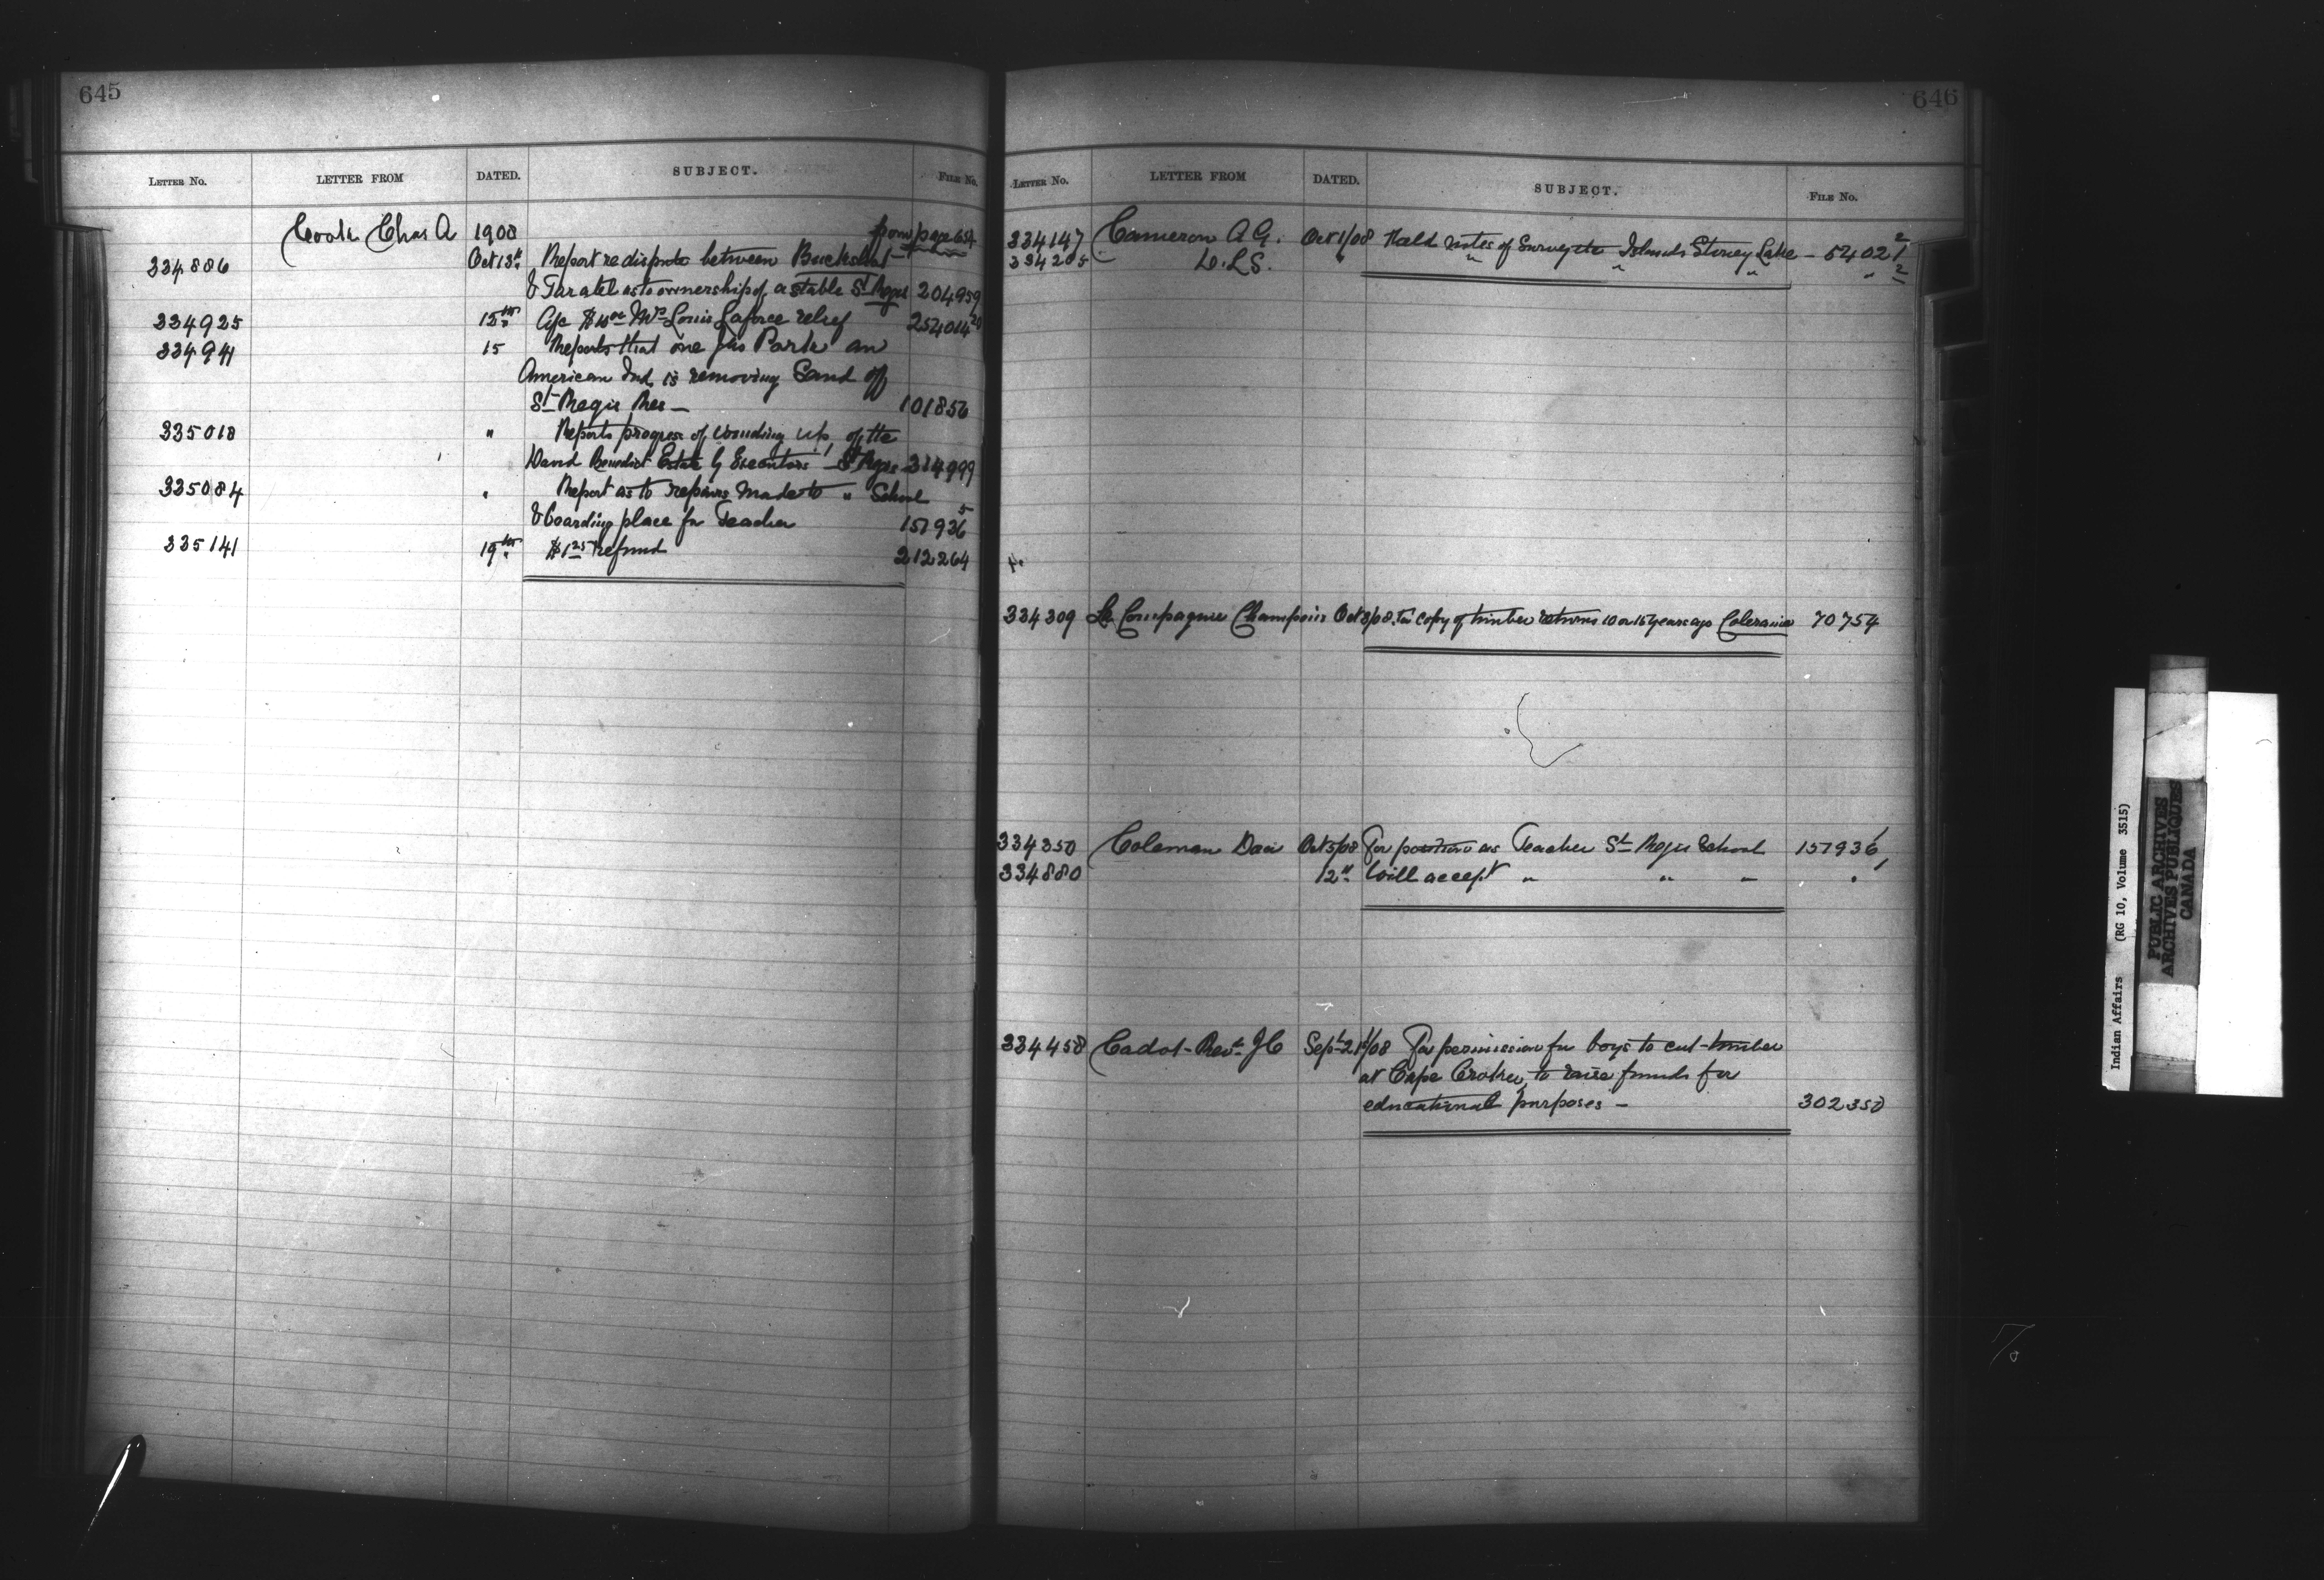 645
LETTER No. LETTER FROM DATED. SUBJECT. FILE No.
Cook Chas A 1908 from page 654
334886 Oct 13th Report re dispute between Buckshot
& Taratel as to ownership of a stable St Regis 204959
334925 15th A/c $10.00 Mrs Louis Laforce relief 254014 20
334941 15 Reports that one Jno Park an
American Ind. is removing Sand off
St Regis Res — 101856
335018 " Reports progress of winding up of the
David Benedict Estate by Executors — St Regis 334999
335084 " Report as to repairs made to " School
& boarding place for Teacher 157936 5
335141 19th $1.25 refund 212264
646
LETTER No. LETTER FROM DATED. SUBJECT. FILE No.
334147 Cameron A G. Oct 1/08 Field notes of Survey the Islands Stoney Lake — 5402 1/2
334205 D.L.S. " " " " " 2
334309 La Compagnie Champoux Oct 3/08 For copy of timber returns 10 or 15 years ago Coleraine 70754
334350 Coleman Oct 5/08 For position as Teacher St Regis School 157936
334880 12th Will accept " " " "
334458 Cadot Revd J C Sept 21st/08 For permission for boys to cut timber
at Cape Croker, to raise funds for
educational purposes — 302350
Indian Affairs (RG 10, Volume 3515)
PUBLIC ARCHIVES
ARCHIVES PUBLIQUES
CANADA